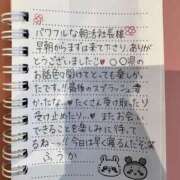 パワフルな朝活社長様
早朝からまずは来て下さり、ありが
とうございました♡ ○○県の
お話色々聞けてとても楽しか
たです!!最後のスプラッシュ
かったな~たくさん受け取ったり
受けたり また お会い
できることを楽しみに待って
るねーっ!!今日は早く寝るんだぞ
ふうか